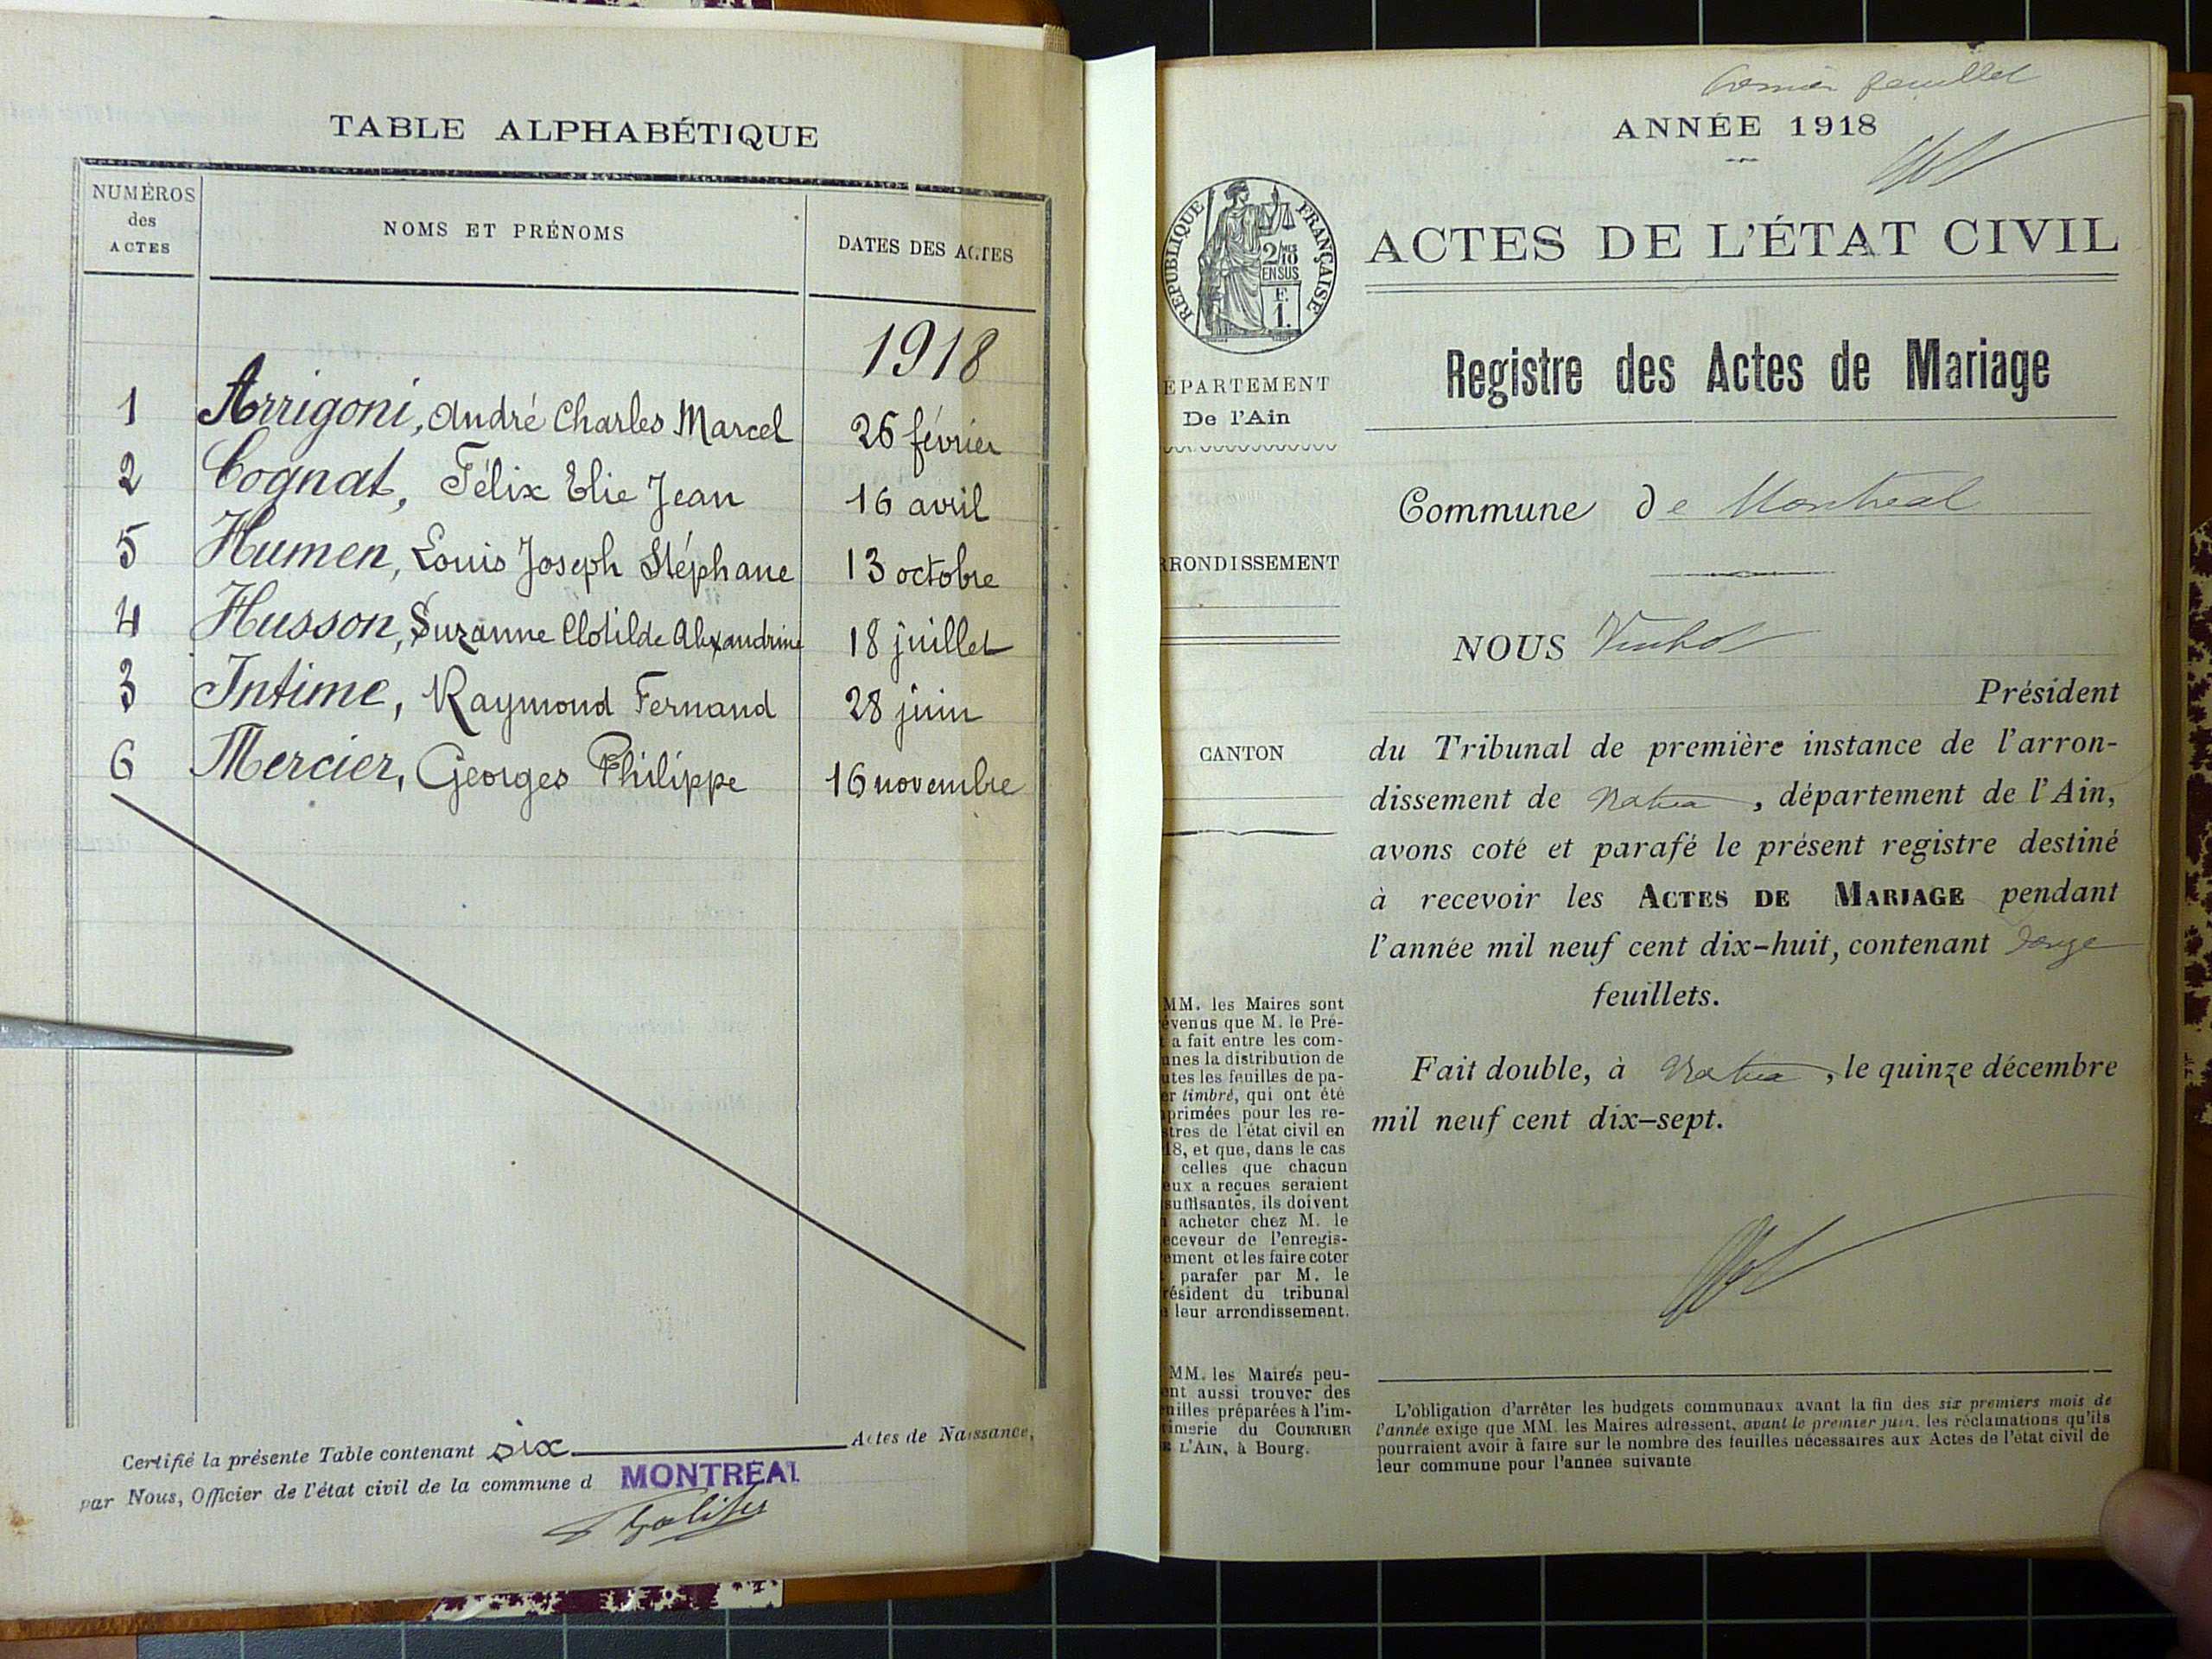 TABLE ALPHABÉTIQUE
NUMÉROS
des
ACTES
NOMS ET PRÉNOMS
DATES DES ACTES
1918
1 Arrigoni, André Charles Marcel 26 février
2 Cognat, Félix Elie Jean 16 avril
5 Humen, Louis Joseph Stéphane 13 octobre
4 Husson, Suzanne Clotilde Alexandrine 18 juillet
3 Intime, Raymond Fernand 28 juin
6 Mercier, Georges Philippe 16 novembre
Certifié la présente Table contenant six Actes de Naissance,
par Nous, Officier de l'état civil de la commune d MONTRÉAL
feuillet
ANNÉE 1918
RÉPUBLIQUE FRANÇAISE
2/10
MES
EN SUS
F.
1.
ACTES DE L'ÉTAT CIVIL
Registre des Actes de Mariage
ÉPARTEMENT
De l'Ain
RRONDISSEMENT
CANTON
MM. les Maires sont
évenus que M. le Pré-
t a fait entre les com-
nes la distribution de
utes les feuilles de pa-
er timbré, qui ont été
primées pour les re-
stres de l'état civil en
18, et que, dans le cas
celles que chacun
eux a reçues seraient
suffisantes, ils doivent
acheter chez M. le
eceveur de l'enregis-
ement et les faire coter
parafer par M. le
résident du tribunal
leur arrondissement.
MM. les Maires peu-
ent aussi trouver des
uilles préparées à l'im-
imerie du COURRIER
E L'AIN, à Bourg.
Commune de Montréal
NOUS
Président
du Tribunal de première instance de l'arron-
dissement de Nantua, département de l'Ain,
avons coté et parafé le présent registre destiné
à recevoir les ACTES DE MARIAGE pendant
l'année mil neuf cent dix-huit, contenant
feuillets.
Fait double, à Nantua, le quinze décembre
mil neuf cent dix-sept.
L'obligation d'arrêter les budgets communaux avant la fin des six premiers mois de
l'année exige que MM. les Maires adressent, avant le premier juin, les réclamations qu'ils
pourraient avoir à faire sur le nombre des feuilles nécessaires aux Actes de l'état civil de
leur commune pour l'année suivante